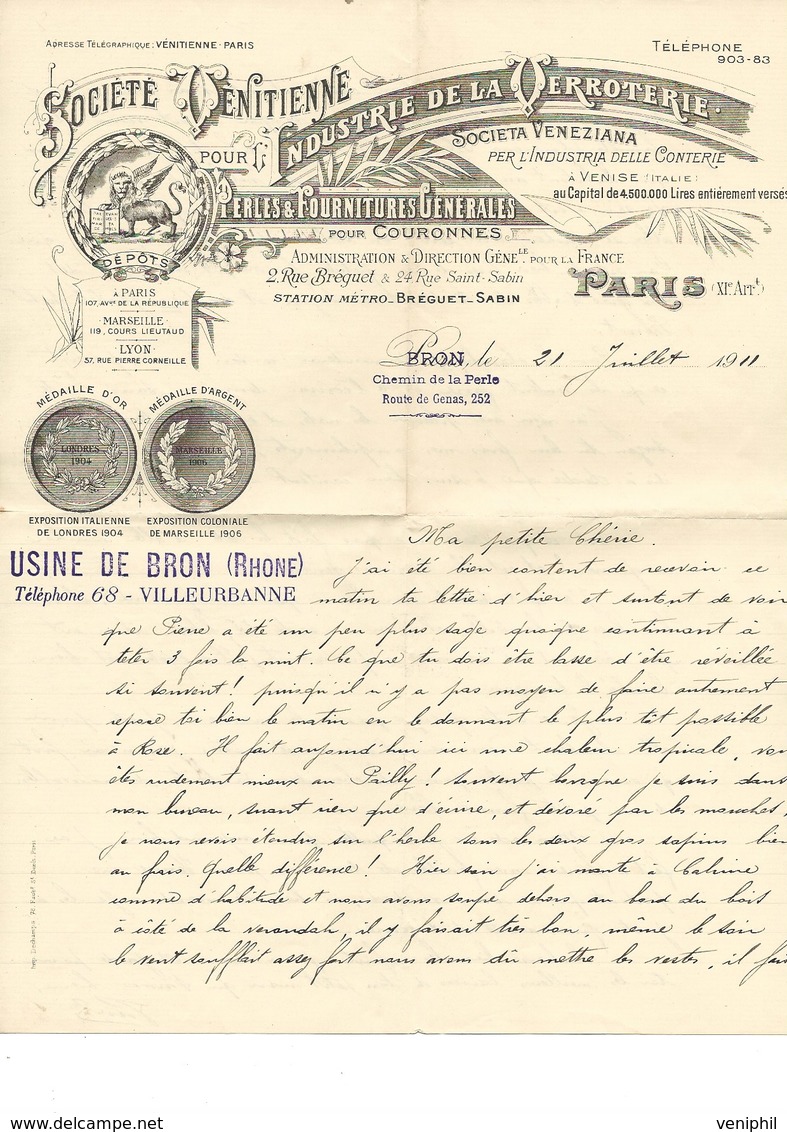 ADRESSE TÉLÉGRAPHIQUE: VÉNITIENNE-PARIS
TÉLÉPHONE
903-83
SOCIÉTÉ VÉNITIENNE
POUR L'INDUSTRIE DE LA VERROTERIE.
SOCIETA VENEZIANA
PER L'INDUSTRIA DELLE CONTERIE
À VENISE (ITALIE)
au Capital de 4.500.000 Lires entiérement versés
PERLES & FOURNITURES GÉNÉRALES
POUR COURONNES
ADMINISTRATION & DIRECTION GÉNÉLE POUR LA FRANCE
2, Rue Bréguet & 24 Rue Saint-Sabin
STATION MÉTRO_BRÉGUET_SABIN
PARIS (XIe ARRt.)
DÉPÔTS
À PARIS
107, AVue DE LA RÉPUBLIQUE
MARSEILLE
119, COURS LIEUTAUD
LYON
57, RUE PIERRE CORNEILLE
Paris, le 21 Juillet 1911
BRON
Chemin de la Perle
Route de Genas, 252
MÉDAILLE D'OR
MÉDAILLE D'ARGENT
LONDRES
1904
MARSEILLE
1906
EXPOSITION ITALIENNE
DE LONDRES 1904
EXPOSITION COLONIALE
DE MARSEILLE 1906
USINE DE BRON (RHONE)
Téléphone 68 - VILLEURBANNE
Ma petite Chérie.
J'ai été bien content de recevoir ce
matin ta lettre d'hier et surtout de voir
que Pierre a été un peu plus sage quoique continuant à
téter 3 fois la nuit. Ce que tu dois être lasse d'être réveillée
si souvent! puisqu'il n'y a pas moyen de faire autrement
repose toi bien le matin en le donnant le plus tôt possible
à Rose. Il fait aujourd'hui ici une chaleur tropicale, vous
êtes rudement mieux au Pailly! Souvent lorsque je suis dans
mon bureau, suant rien que d'écrire, et dévoré par les mouches,
je nous revois étendus sur l'herbe sous les deux gros sapins bien
au frais. Quelle différence! Hier soir j'ai monté à
comme d'habitude et nous avons soupé dehors au bord du bois
à côté de la verandah, il y faisait très bon, même le soir
le vent soufflait assez fort nous avons dû mettre les vestes, il
veniphil